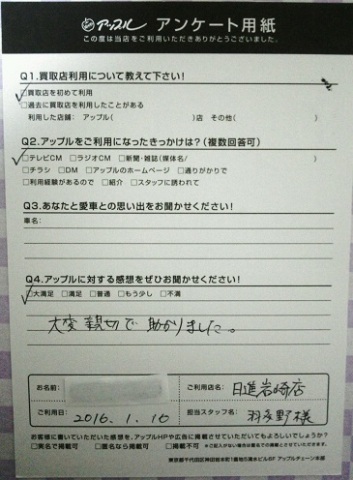 アップル アンケート用紙
この度は当店をご利用いただきありがとうございました。
Q1.買取店利用について教えて下さい!
□買取店を初めて利用
□過去に買取店を利用したことがある
利用した店舗: アップル( )店 その他( )
Q2.アップルをご利用になったきっかけは?(複数回答可)
□テレビCM □ラジオCM □新聞・雑誌(媒体名/ )
□チラシ □DM □アップルのホームページ □通りがかりで
□利用経験があるので □紹介 □スタッフに誘われて
Q3.あなたと愛車との思い出をお聞かせください!
車名:
Q4.アップルに対する感想をぜひお聞かせください!
□大満足 □満足 □普通 □もう少し □不満
大変親切で助かりました。
お名前:
ご利用店名: 日進岩崎店
ご利用日: 2016.1.16
担当スタッフ名: 羽多野様
お客様に書いていただいた感想を、アップルHPや広告に掲載させていただいてもよろしいでしょうか?
□実名で掲載可 □匿名なら掲載可 □掲載不可 ※ご記入がない場合は匿名での掲載とさせていただきます。